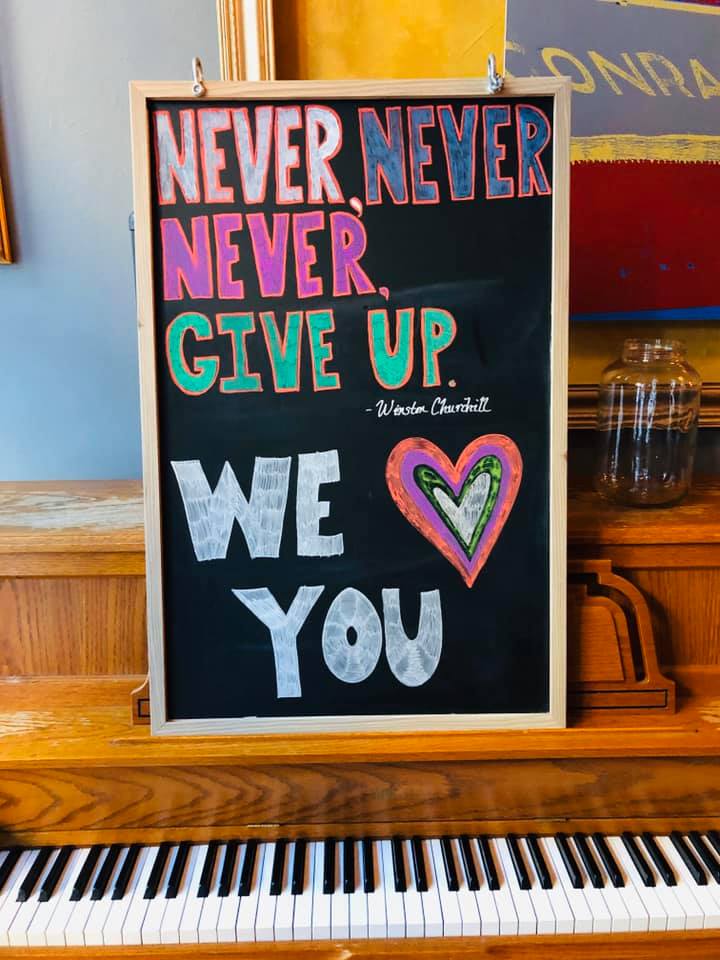 CONRA
NEVER, NEVER
NEVER,
GIVE UP.
- Winston Churchill
WE
YOU